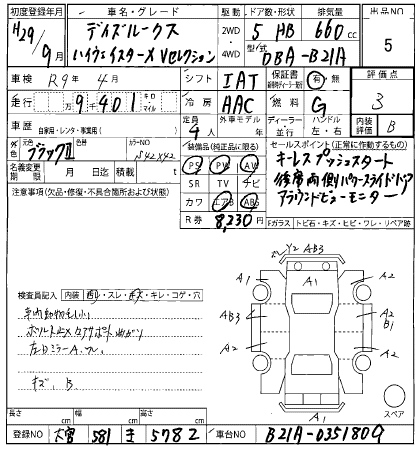 初度登録年月 車名・グレード 駆動 ドア数・形状 排気量 出品NO
H29/9月 デイズルークス 2WD 4WD 5 HB 660cc 5
ハイウェイスターX Vセレクション 型式 DBA-B21A
車検 R9年 4月 シフト IAT 保証書 有・無 評価点
走行 万9千401 キロ マイル 冷房 AAC 燃料 G 3
車歴 自家用・レンタ・事業用( ) 定員 4人 外車モデル 年 ディーラー 並行 ハンドル 左・右 内装 B
外色 元色 ブラックII 色替 カラーNO 装備品(純正品に限る) セールスポイント(正常に作動するもの)
名義変更期限 月 日迄 積載 t PS PW AW キーレスプッシュスタート
注意事項(欠品・修復・不具合箇所および状態) SR TV ナビ 後席両側パワースライドドア
カワ エアB ABS アラウンドビューモニター
R券 8,230円 Fガラス トビ石・キズ・ヒビ・ワレ・リペア跡
Y2 AB3
A1 A1 A2
検査員記入 内装 スレ・キレ・コゲ・穴
AB3 A2 B1
A2 A2
左Dミラー A
キズ、B
A1
スペア
長さ cm 幅 cm 高さ cm
登録NO 大宮 581 き 5782 車台NO B21A-0351809